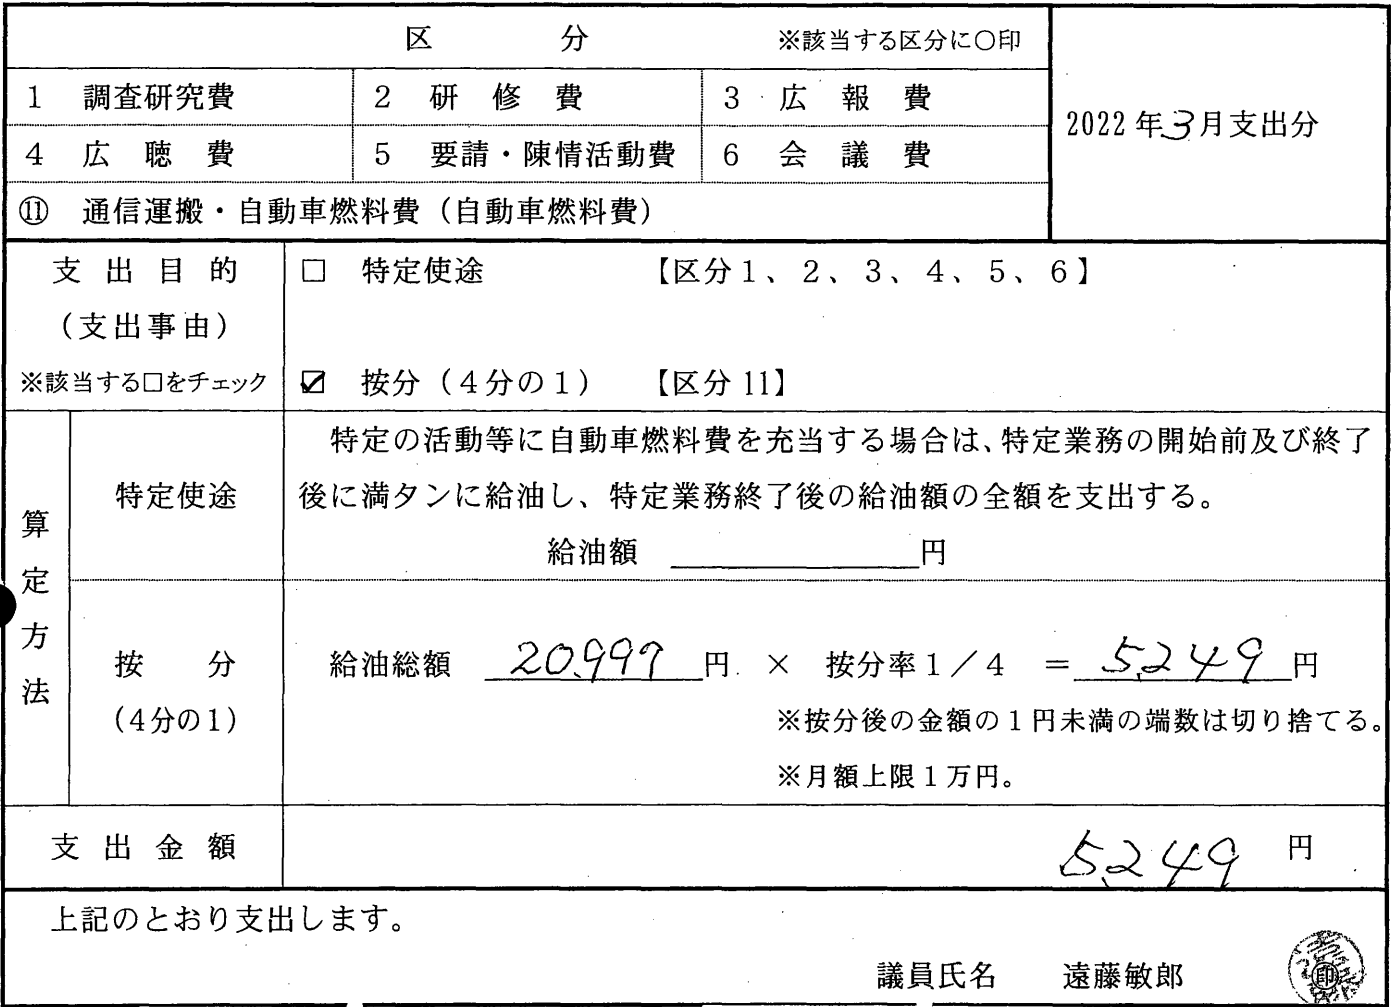 区 分 ※該当する区分に○印
1 調査研究費 2 研修費 3 広報費
2022年3月支出分
4 広聴費 5 要請・陳情活動費 6 会議費
⑪ 通信運搬・自動車燃料費（自動車燃料費）
支出目的
（支出事由）
※該当する□をチェック
□ 特定使途 【区分1、2、3、4、5、6】
☑ 按分（4分の1） 【区分11】
算定方法
特定使途
特定の活動等に自動車燃料費を充当する場合は、特定業務の開始前及び終了
後に満タンに給油し、特定業務終了後の給油額の全額を支出する。
給油額 円
按分
（4分の1）
給油総額 20,997円 × 按分率1／4 ＝ 5,249円
※按分後の金額の1円未満の端数は切り捨てる。
※月額上限1万円。
支出金額 5,249 円
上記のとおり支出します。
議員氏名 遠藤敏郎 印